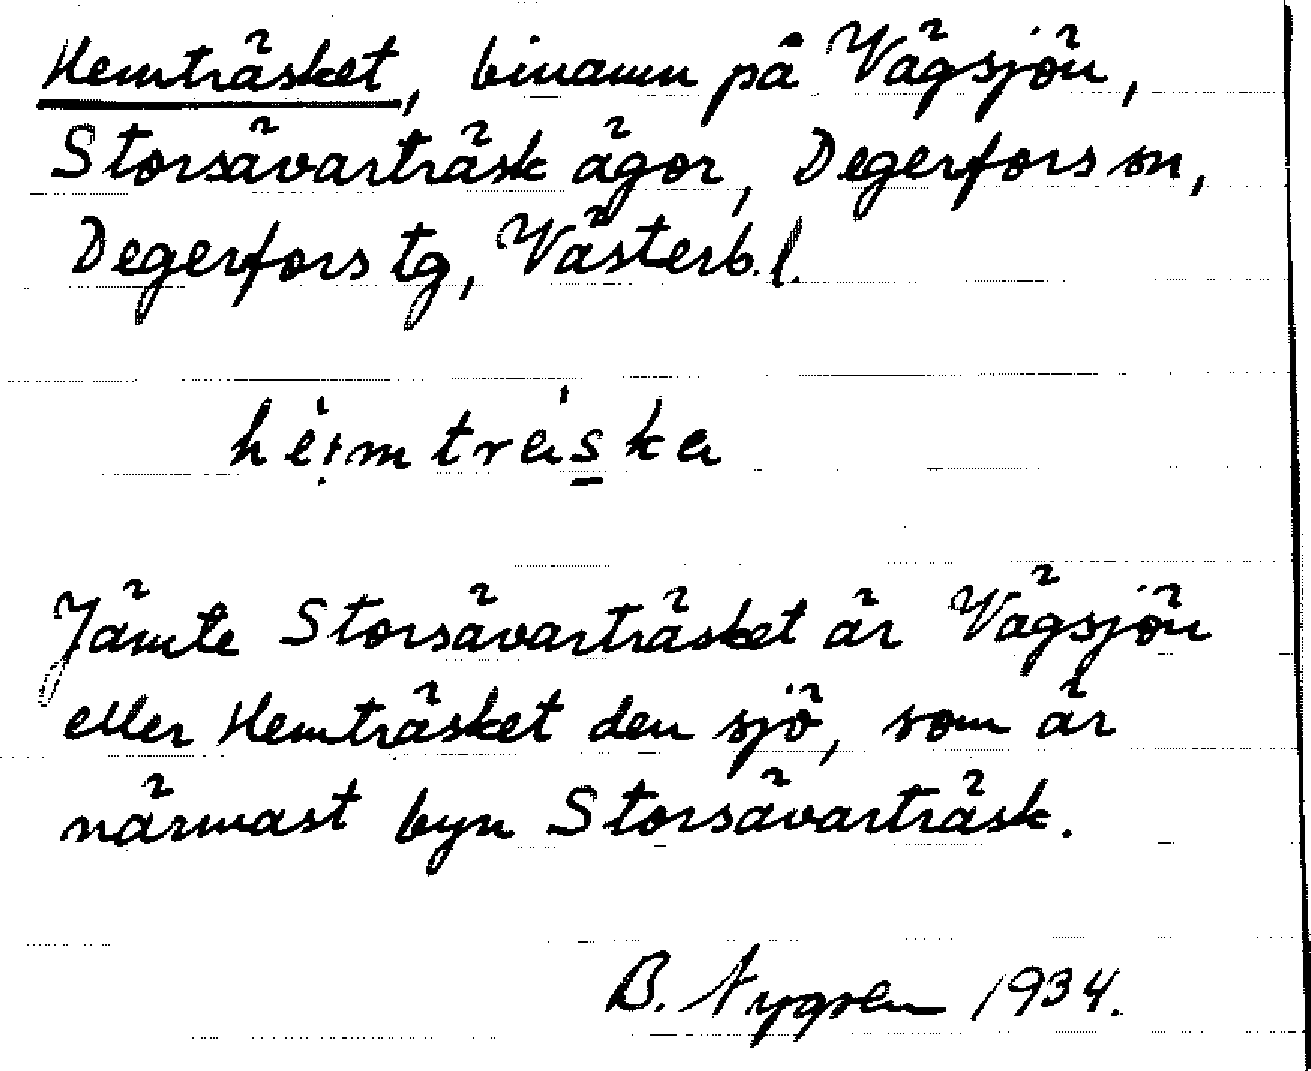 Hemträsket, binamn på Vägsjön,
Storsävarträsk ägor, Degerfors sn,
Degerfors tg, Västerb. l.
heimträska
Jämte Storsävarträsket är Vägsjön
eller Hemträsket den sjö, som är
närmast byn Storsävarträsk.
B. Nygren 1934.